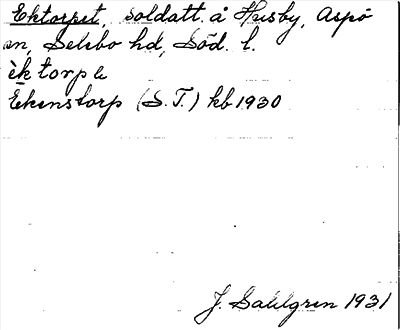 Ektorpet, soldatt. å Husby, Aspö
sn, Selebo hd, Söd. l.
èktorpe
Ekenstorp (S.T.) kb 1930
J. Sahlgren 1931